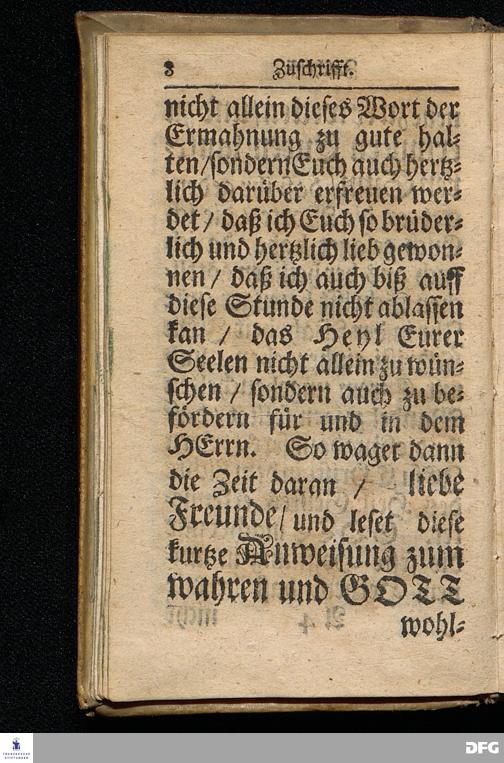 8 Zuschrifft.
nicht allein dieses Wort der
Ermahnung zu gute hal-
ten/sondern Euch auch hertz-
lich darüber erfreuen wer-
det / daß ich Euch so brüder-
lich und hertzlich lieb gewon-
nen / daß ich auch biß auff
diese Stunde nicht ablassen
kan / das Heyl Eurer
Seelen nicht allein zu wün-
schen / sondern auch zu be-
fördern für und in dem
HErrn. So waget dann
die Zeit daran / liebe
Freunde/ und leset diese
kurtze Anweisung zum
wahren und GOTT
wohl-
FRANCKESCHE
STIFTUNGEN
DFG